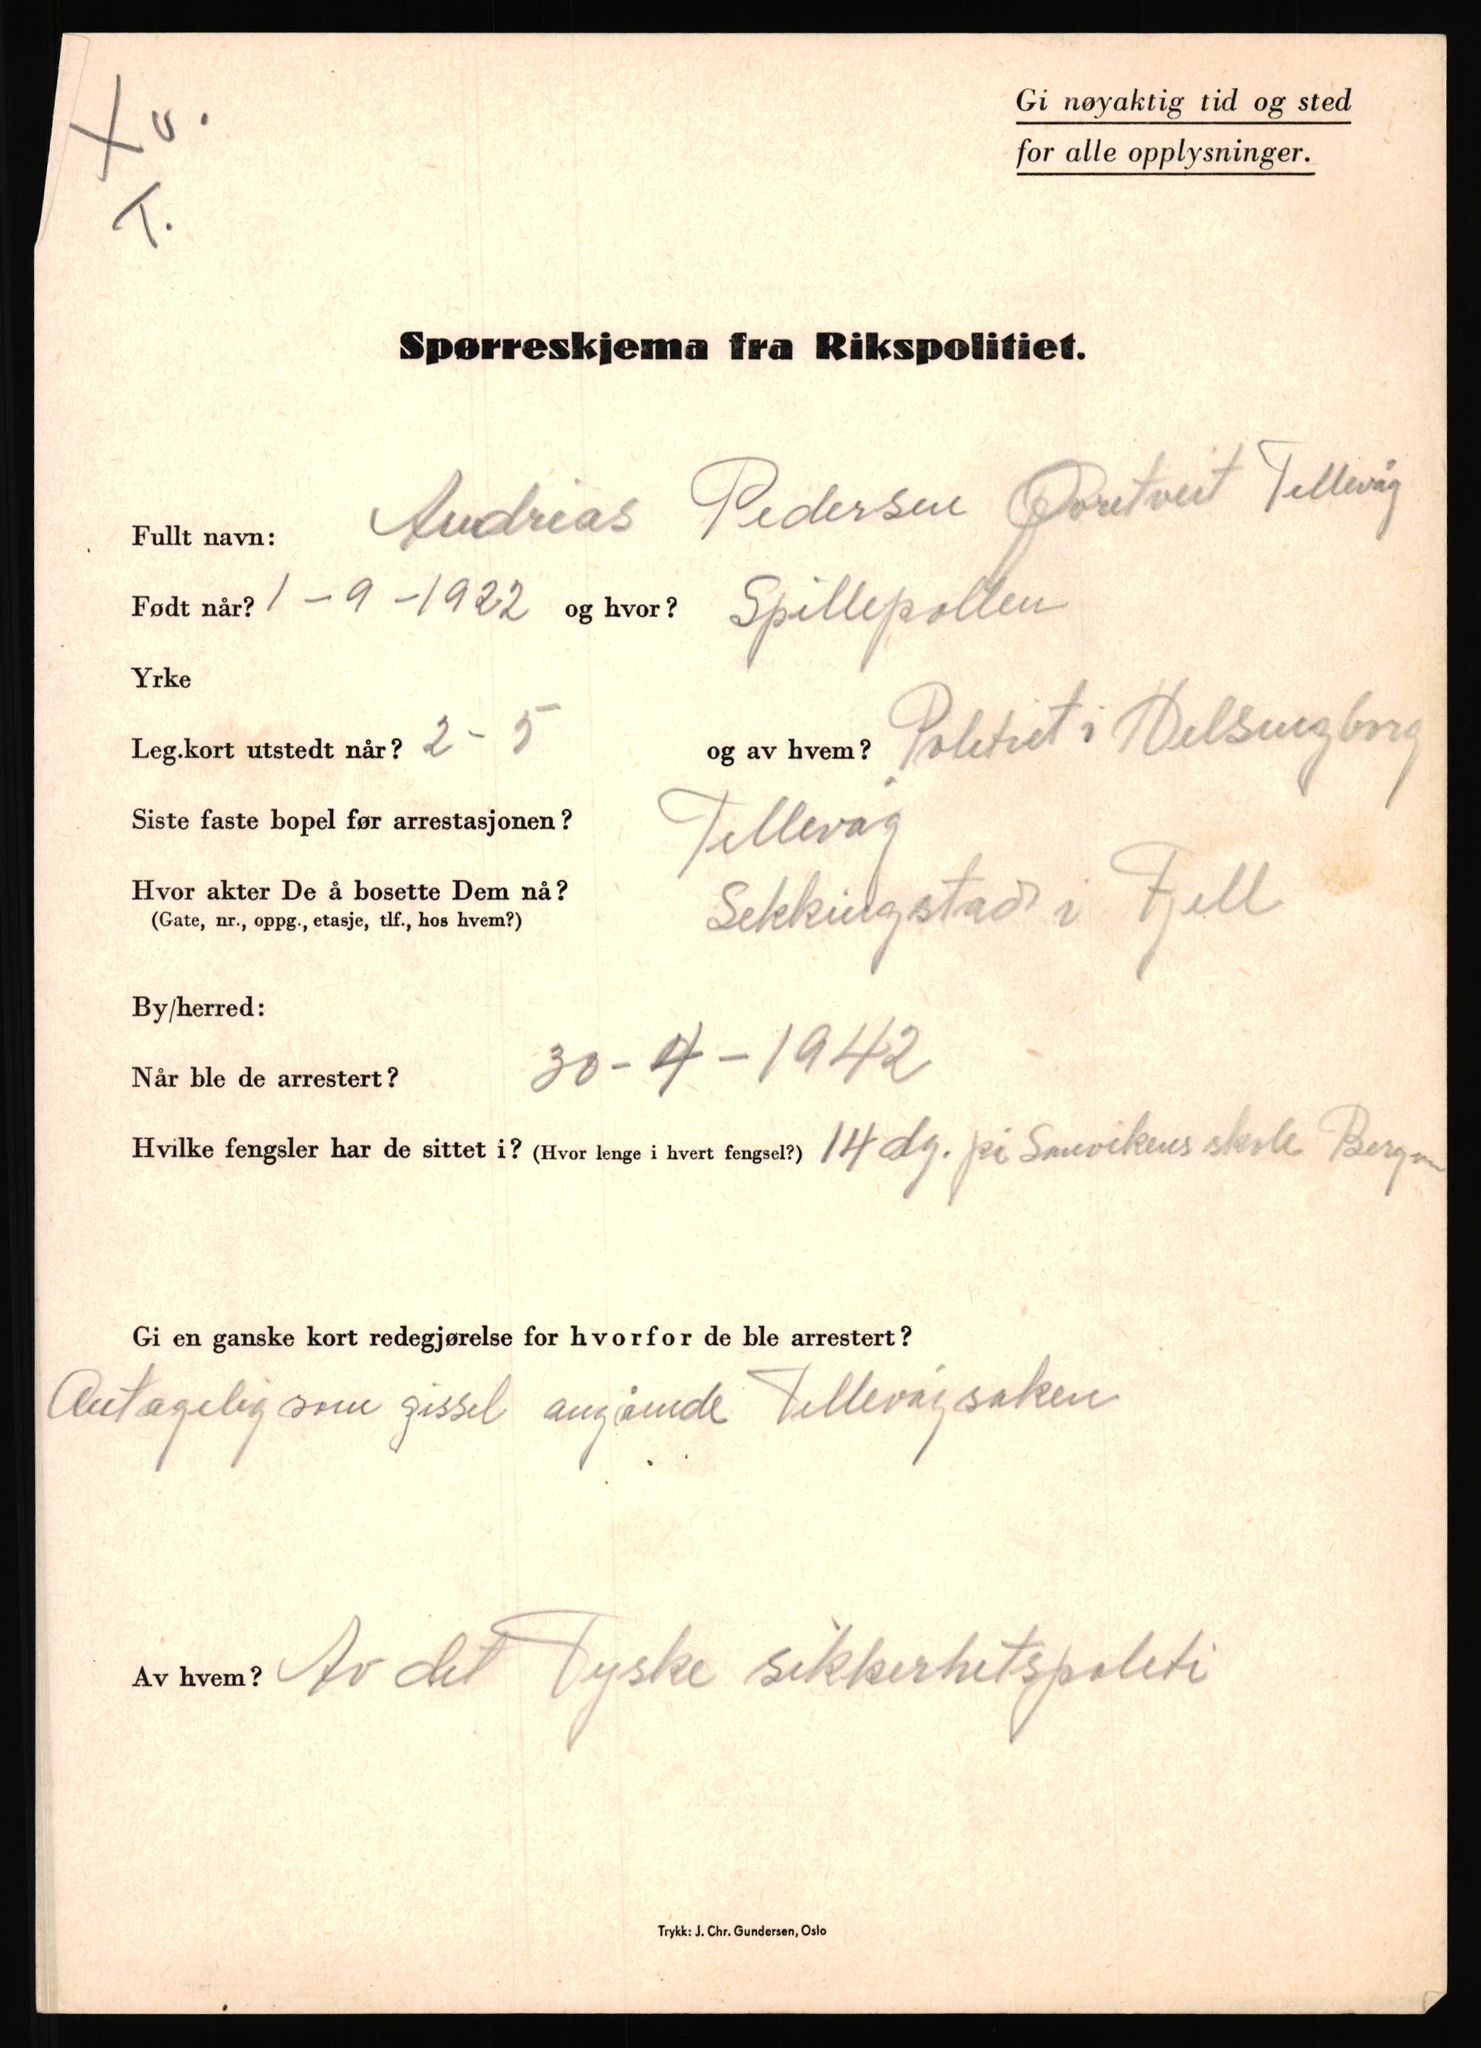 Xv.
T.
Gi nøyaktig tid og sted
for alle opplysninger.
Spørreskjema fra Rikspolitiet.
Fullt navn: Andreas Pedersen Øvretveit Tellevåg
Født når? 1-9-1922 og hvor? Spillepollen
Yrke
Leg.kort utstedt når? 2-5 og av hvem? Politiet i Helsingborg
Siste faste bopel før arrestasjonen? Tellevåg
Hvor akter De å bosette Dem nå? Sekkingstad i Fjell
(Gate, nr., oppg., etasje, tlf., hos hvem?)
By/herred:
Når ble de arrestert? 30-4-1942
Hvilke fengsler har de sittet i? (Hvor lenge i hvert fengsel?) 14 dg. på Sanvikens skole Bergen
Gi en ganske kort redegjørelse for hvorfor de ble arrestert?
Antagelig som gissel angående Tellevågsaken
Av hvem? Av det Tyske sikkerhetspoleti
Trykk: J. Chr. Gundersen, Oslo